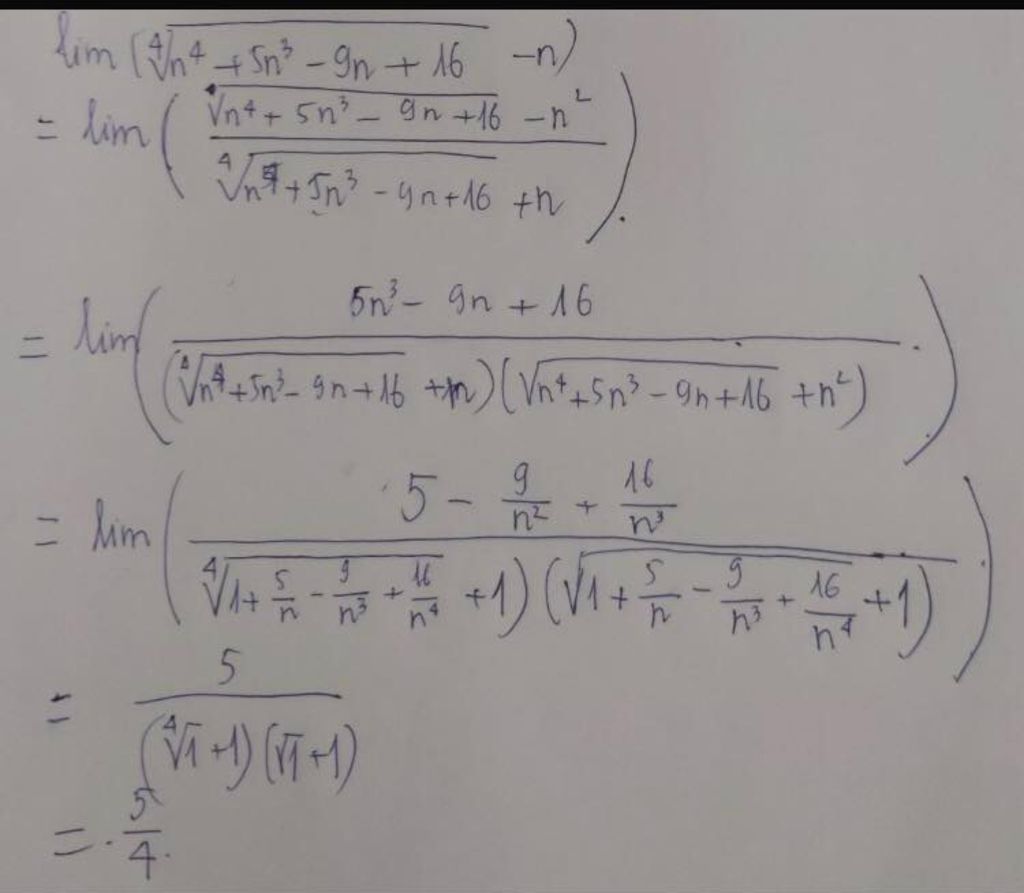 lim (∜(n⁴ + 5n³ - 9n + 16) - n)
= lim ( (√(n⁴ + 5n³ - 9n + 16) - n²) / (∜(n⁴ + 5n³ - 9n + 16) + n) ).
= lim ( (5n³ - 9n + 16) / ((∜(n⁴ + 5n³ - 9n + 16) + n)(√(n⁴ + 5n³ - 9n + 16) + n²)) )
= lim ( (5 - 9/n² + 16/n³) / (∜(1 + 5/n - 9/n³ + 16/n⁴) + 1)(√(1 + 5/n - 9/n³ + 16/n⁴) + 1) )
= 5 / ((∜1 + 1)(√1 + 1))
= 5/4.